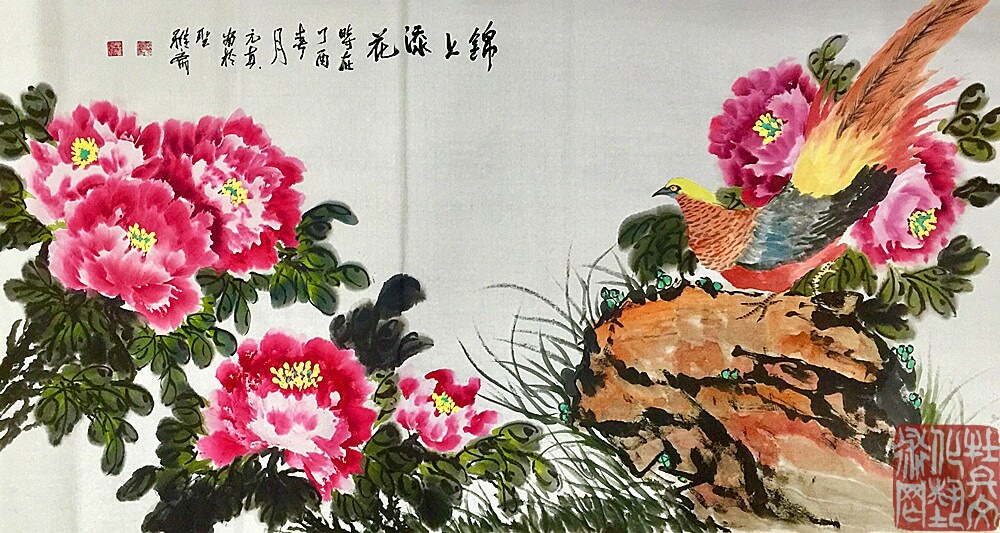 錦上添花
時在
丁酉
春
月
元真
寫於
聖
雅齋